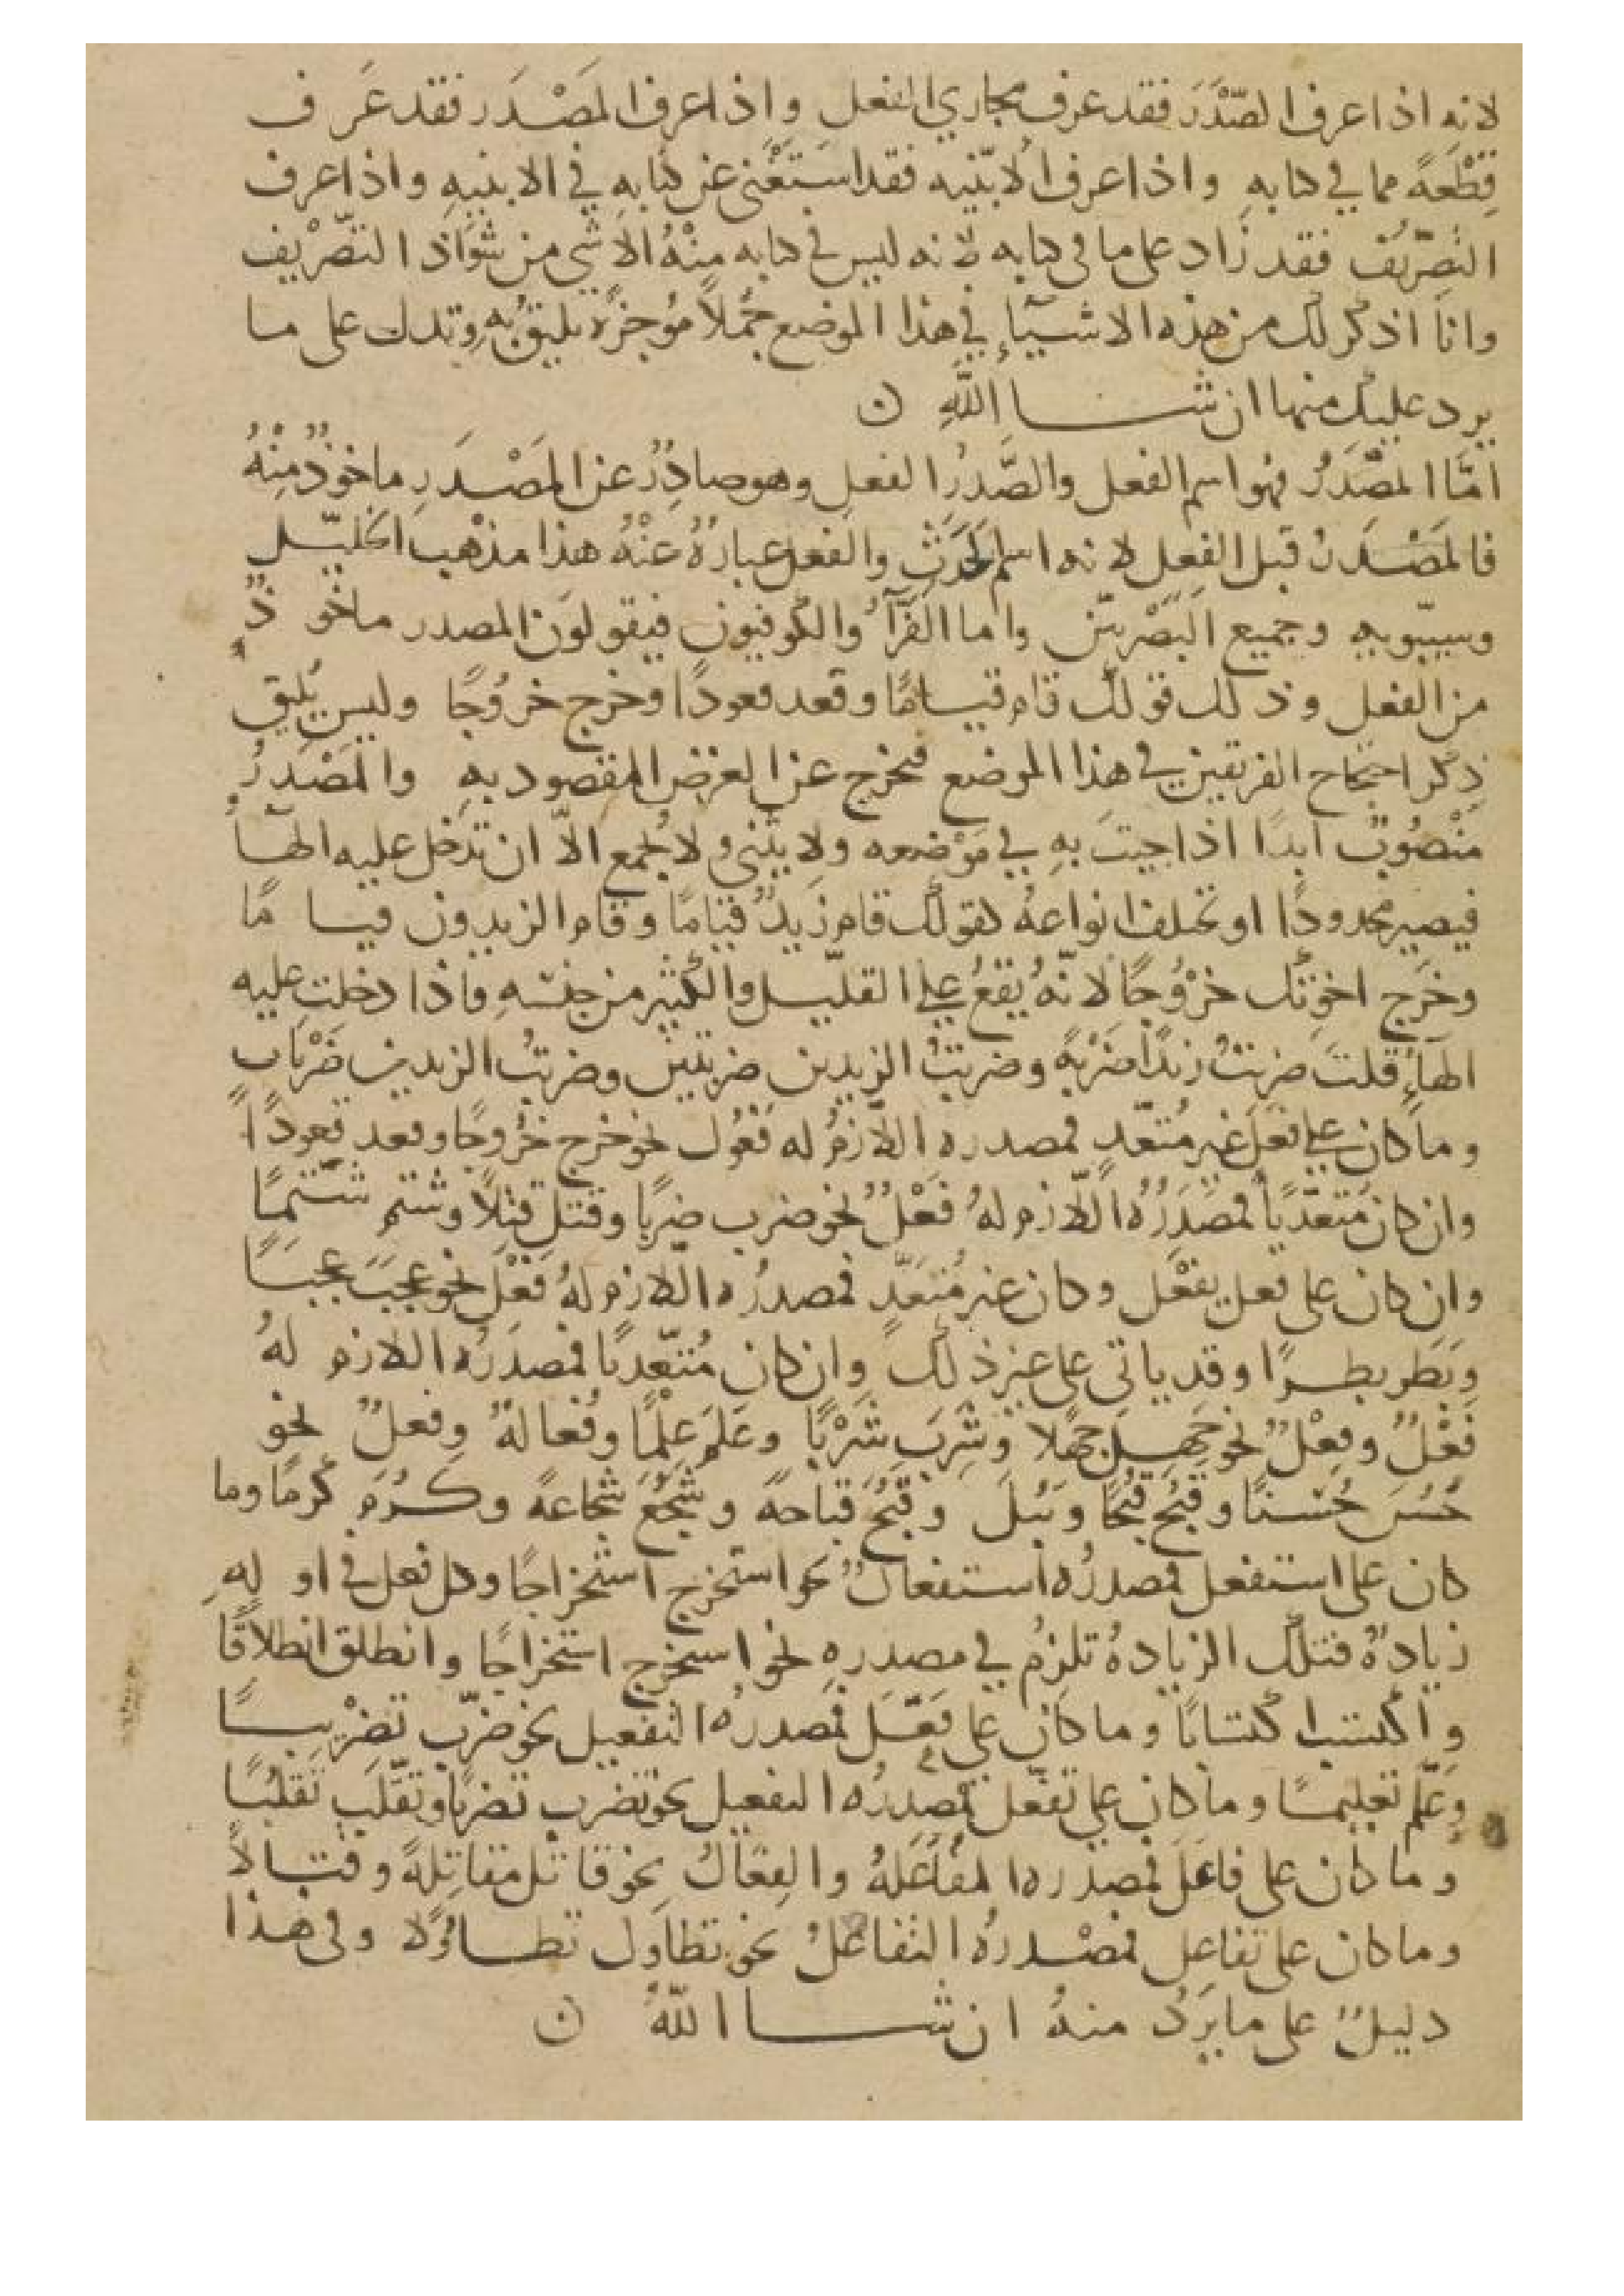 لانه اذا عرف الصَّدَرَ فقد عرف مجاري الفعل واذا عرف المَصْدَر فقد عَرف
قِطْعَةً مما في كتابه واذا عرف الابنيه فقد استَغْنى عن كتابه في الابنيهِ واذا عرف
التصْرِيْفَ فقد زاد على ما فى كتابه لانه ليس في كتابه مِنْهُ الا شي من شَوَاذ التصْرِيْف
وانا اذكر لك من هذه الاشيآءِ في هذا الموضع جُمَلاً مُوْجزةً يليق بهِ وتدلك على ما
يرد عليك منها ان شا اللَّهِ ن
امَّا المَصْدَرُ فهو اسم الفعل والصَّدرُ الفعلِ وهو صادِرٌ عن المَصْدَرِ ماخوذٌ مِنْهُ
فالمَصْدَرُ قبل الفِعل لانه اسم لحَدَثٍ والفعل عبارةُ عَنْهُ هذا مذْهب الخَليْل
وسيبويهِ وجميع البَصْرييْن واما الفَرَّآءُ والكوفيون فيقولون المصدر ماخوذٌ
من الفعل وذلك قولك قام قيامًا وقعد قعودًا وخرج خرُوْجًا وليس يَليق
ذِكر احتجاج الفريقين في هذا الموضع فيخرج عن الغرض المقصود بهِ والمَصْدَرُ
مَنْصُوْبٌ ابدًا اذا جيتَ بهِ في مَوْضعِه ولا يثنى ولا يُجمع الاّ ان تَدْخل عليه الهَآءُ
فيصير محدودًا او تختلف انواعهُ كقولك قام زَيدٌ قيَامًا وقام الزيدون قيا مًا
وخَرَج اخوتك خرُوْجًا لانّهُ يَقعُ على القليْل والكثيْر من جِنسِهِ فاذا دخلت عليه
الهَآءُ قلتَ ضربْتُ زيْدًا ضَرْبةً وضربتُ الزيدين ضربتيْن وضربتُ الزيدين ضَرْبَات
وما كان على فَعَلَ غير مُتعدٍّ فمصدره اللازمُ له فُعُول نحو خرج خرُوجًا وقعد قعودًا
وان كان مُتعدّيًا فمَصْدَرُهُ اللّازم لهُ فَعْلٌ نحو ضرب ضربًا وقتل قتلاً وشتم شتْمًا
وان كان على فعِل يفعَل وكان غير مُتعَدٍّ فمصدرُه اللازم لهُ فَعَل نحو عجبَ عجَبًا
وبَطر بطرًا وقد ياتى على غير ذلك وان كان مُتعّديًا فمصدَرُه اللازم لهُ
فَعْلٌ وفِعْلٌ نحو جَهِلَ جهْلا وشَرِبَ شَرْبًا وعَلِمَ عِلْمًا وفُعالةٌ وفعلٌ نحو
حَسُنَ حُسْنًا وقبُح قُبْحًا ونَبُلَ وقَبُحَ قباحةً وشَجُعَ شجاعةً وكَرُمَ كرَمًا وما
كان على استفعل فمصدرُه استفعالٌ نحو استخرج استخراجًا وكل فعل في اولهِ
زيادةٌ فتلك الزيادةُ تلزمُ في مصدرهِ نحو استخرج استخراجًا وانطلق انطلاقًا
واكتسب اكتسابًا وما كان على فَعَّلَ فمصدرُه التفعيل نحو ضرّب تضْريبًا
وعَلَّم تعليمًا وما كان على تفعّل فمصدرُه التفعيل نحو تضرب تضربًا وتقَلَّب تقلُّبًا
وما كان على فاعَلَ فمصدره المُفاعَلةُ والفِعَالُ نحو قاتل مقاتلةً وقتالاً
وما كان على تفاعل فمصْدرُهُ التفاعُلُ نحو تطاوَل تطاوُلا وفى هذا
دليلٌ على ما يَرِدُ منهُ ان شا اللهُ ن